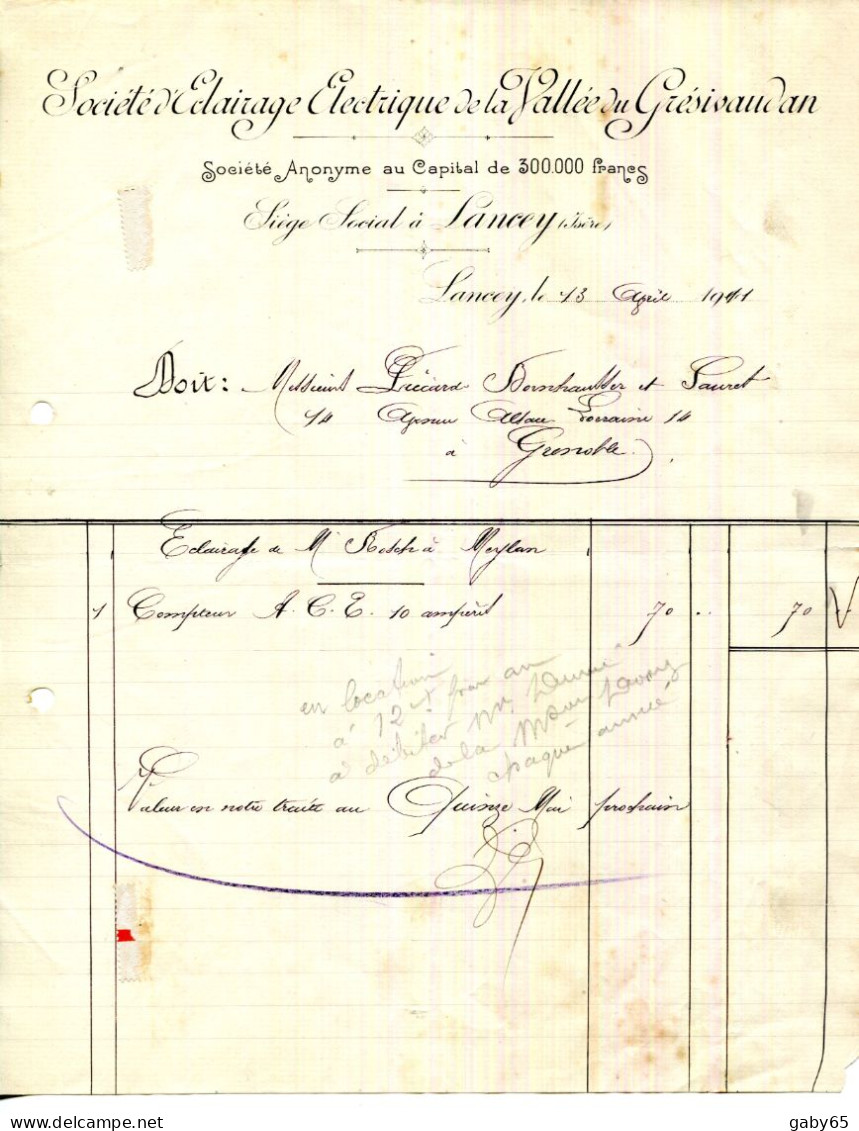 Société d'Eclairage Electrique de la Vallée du Grésivaudan
Société Anonyme au Capital de 300.000 francs
Siège Social à Lancey (Isère)
Lancey, le 13 Avril 1911
Doit: Messieurs et Sauret
14 Avenue Alsace Lorraine 14
à Grenoble
Eclairage de Mr à Meylan
1 Compteur A. C. E. 10 ampères 70 .. 70
en location
à 12 frs par an
à débiter Mr
de la
chaque année
Valeur en notre traite au Quinze Mai prochain
delcampe.net
gaby65